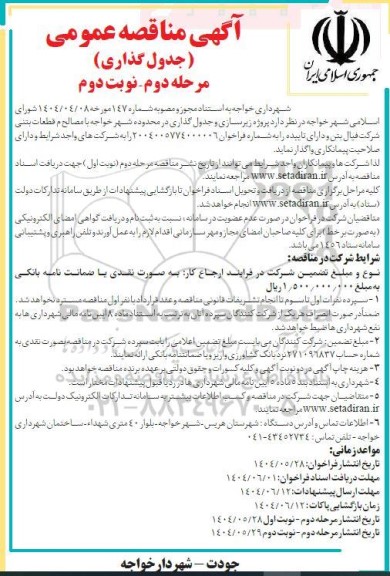 آگهی مناقصه عمومی
(جدول گذاری)
مرحله دوم - نوبت دوم
جمهوری اسلامی ایران
شهرداری خواجه به استناد مجوز و مصوبه شماره ۱۴۷ مورخه ۱۴۰۴/۰۴/۰۸ شورای
اسلامی شهر خواجه در نظر دارد پروژه زیرسازی و جدول گذاری در محدوده شهر خواجه با مصالح م قطعات بتنی
شرکت فیال بتن و دارای تاییده را به شماره فراخوان ۲۰۰۴۰۰۵۷۷۴۰۰۰۰۰۶ را به شرکت های واجد شرایط و دارای
صلاحیت پیمانکاری واگذار نماید.
لذا شرکت ها و پیمانکاران واجد شرایط می توانند از تاریخ نشر مناقصه مرحله دوم (نوبت اول) جهت دریافت اسناد
مناقصه به آدرس www.setadiran.ir مراجعه نمایند.
کلیه مراحل برگزاری مناقصه از دریافت و تحویل اسناد فراخوان تا بازگشایی پیشنهادات از طریق سامانه تدارکات دولت
(ستاد) به آدرس www.setadiran.ir انجام خواهد شد.
متقاضیان شرکت در فراخوان در صورت عدم عضویت در سامانه، نسبت به ثبت نام و دریافت گواهی امضای الکترونیکی
(به صورت برخط) برای کلیه صاحبان امضای مجاز و مهر سازمانی اقدام لازم را به عمل آورند و تلفن راهبری و پشتیبانی
سامانه ستاد ۱۴۵۶ می باشد.
شرایط شرکت در مناقصه:
نوع و مبلغ تضمین شرکت در فرایند ارجاع کار: به صورت نقدی یا ضمانت نامه بانکی
به مبلغ ۱,۵۰۰,۰۰۰,۰۰۰ ریال
۱- سپرده نفرات اول تا سوم تا انجام تشریفات قانونی مناقصه و عقد قرارداد با نفر اول مناقصه مسترد نخواهد شد.
ضمنا در صورت انصراف هریک از شرکت کنندگان سپرده آنان به ترتیب به استناد ماده ۸ آیین نامه مالی شهرداری ها به
نفع شهرداری ها ضبط خواهد شد.
۲- مبلغ تضمین: شرکت کنندگان می بایست مبلغ تضمین اعلامی را بابت سپرده شرکت در مناقصه بصورت نقدی به
شماره حساب ۲۷۱۰۹۶۸۳۷ نزد بانک کشاورزی واریز و یا ضمانتنامه بانکی ارائه نمایند.
۳- هزینه چاپ آگهی در دو نوبت آگهی و کلیه کسورات و حقوق دولتی بر عهده برنده مناقصه خواهد بود.
۴- شهرداری به استناد بند ۵ ماده ۵ آیین نامه مالی شهرداری ها در رد یا قبول پیشنهادات مختار است.
۵- متقاضیان جهت شرکت در مناقصه و کسب اطلاعات بیشتر به سامانه تدارکات الکترونیک دولت به آدرس
www.setadiran.ir مراجعه نمایند.
۶- اطلاعات تماس و آدرس دستگاه: شهرستان هریس - شهر خواجه - بلوار ۴۰ متری شهداء - ساختمان شهرداری
خواجه - تلفن تماس: ۴۳۴۵۲۷۳۴-۰۴۱
مواعد زمانی:
تاریخ انتشار فراخوان: ۱۴۰۴/۰۵/۲۸
مهلت دریافت اسناد فراخوان: ۱۴۰۴/۰۶/۰۱
مهلت ارسال پیشنهادات: ۱۴۰۴/۰۶/۱۲
زمان بازگشایی پاکات: ۱۴۰۴/۰۶/۱۲
تاریخ انتشار مرحله دوم - نوبت اول ۱۴۰۴/۰۵/۲۸
تاریخ انتشار مرحله دوم - نوبت دوم ۱۴۰۴/۰۵/۲۹
جودت - شهردار خواجه